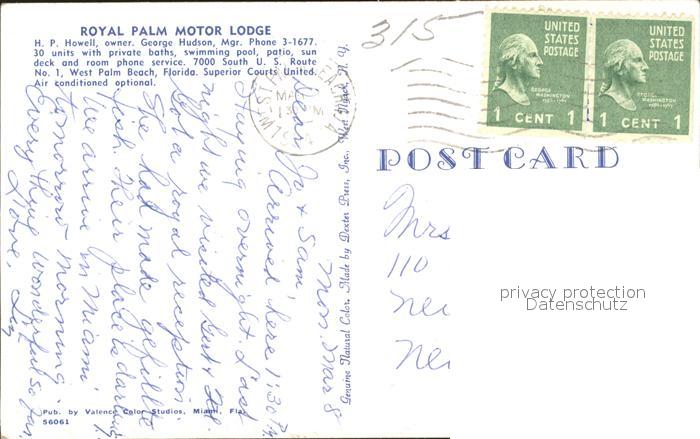 ROYAL PALM MOTOR LODGE
H. P. Howell, owner. George Hudson, Mgr. Phone 3-1677.
30 units with private baths, swimming pool, patio, sun
deck and room phone service. 7000 South U. S. Route
No. 1, West Palm Beach, Florida. Superior Courts United.
Air conditioned optional.
315
UNITED
STATES
POSTAGE
GEORGE
WASHINGTON
1 CENT 1
UNITED
STATES
POSTAGE
GEORGE
WASHINGTON
1 CENT 1
POST CARD
Mon. Mar 8
Dear Jo & Sam,
Arrived here 1:30 &
staying overnight. Last
night we visited Gert &
Got a royal reception.
She had made gefillte
fish. Their place is darling.
We arrive in Miami
tomorrow morning.
Everything wonderful so far.
Love,
Genuine Natural Color. Made by Dexter Press, Inc., West Nyack, N. Y.
Mrs
110
Ne
Ne
privacy protection
Datenschutz
Pub. by Valence Color Studios, Miami, Fla.
56061